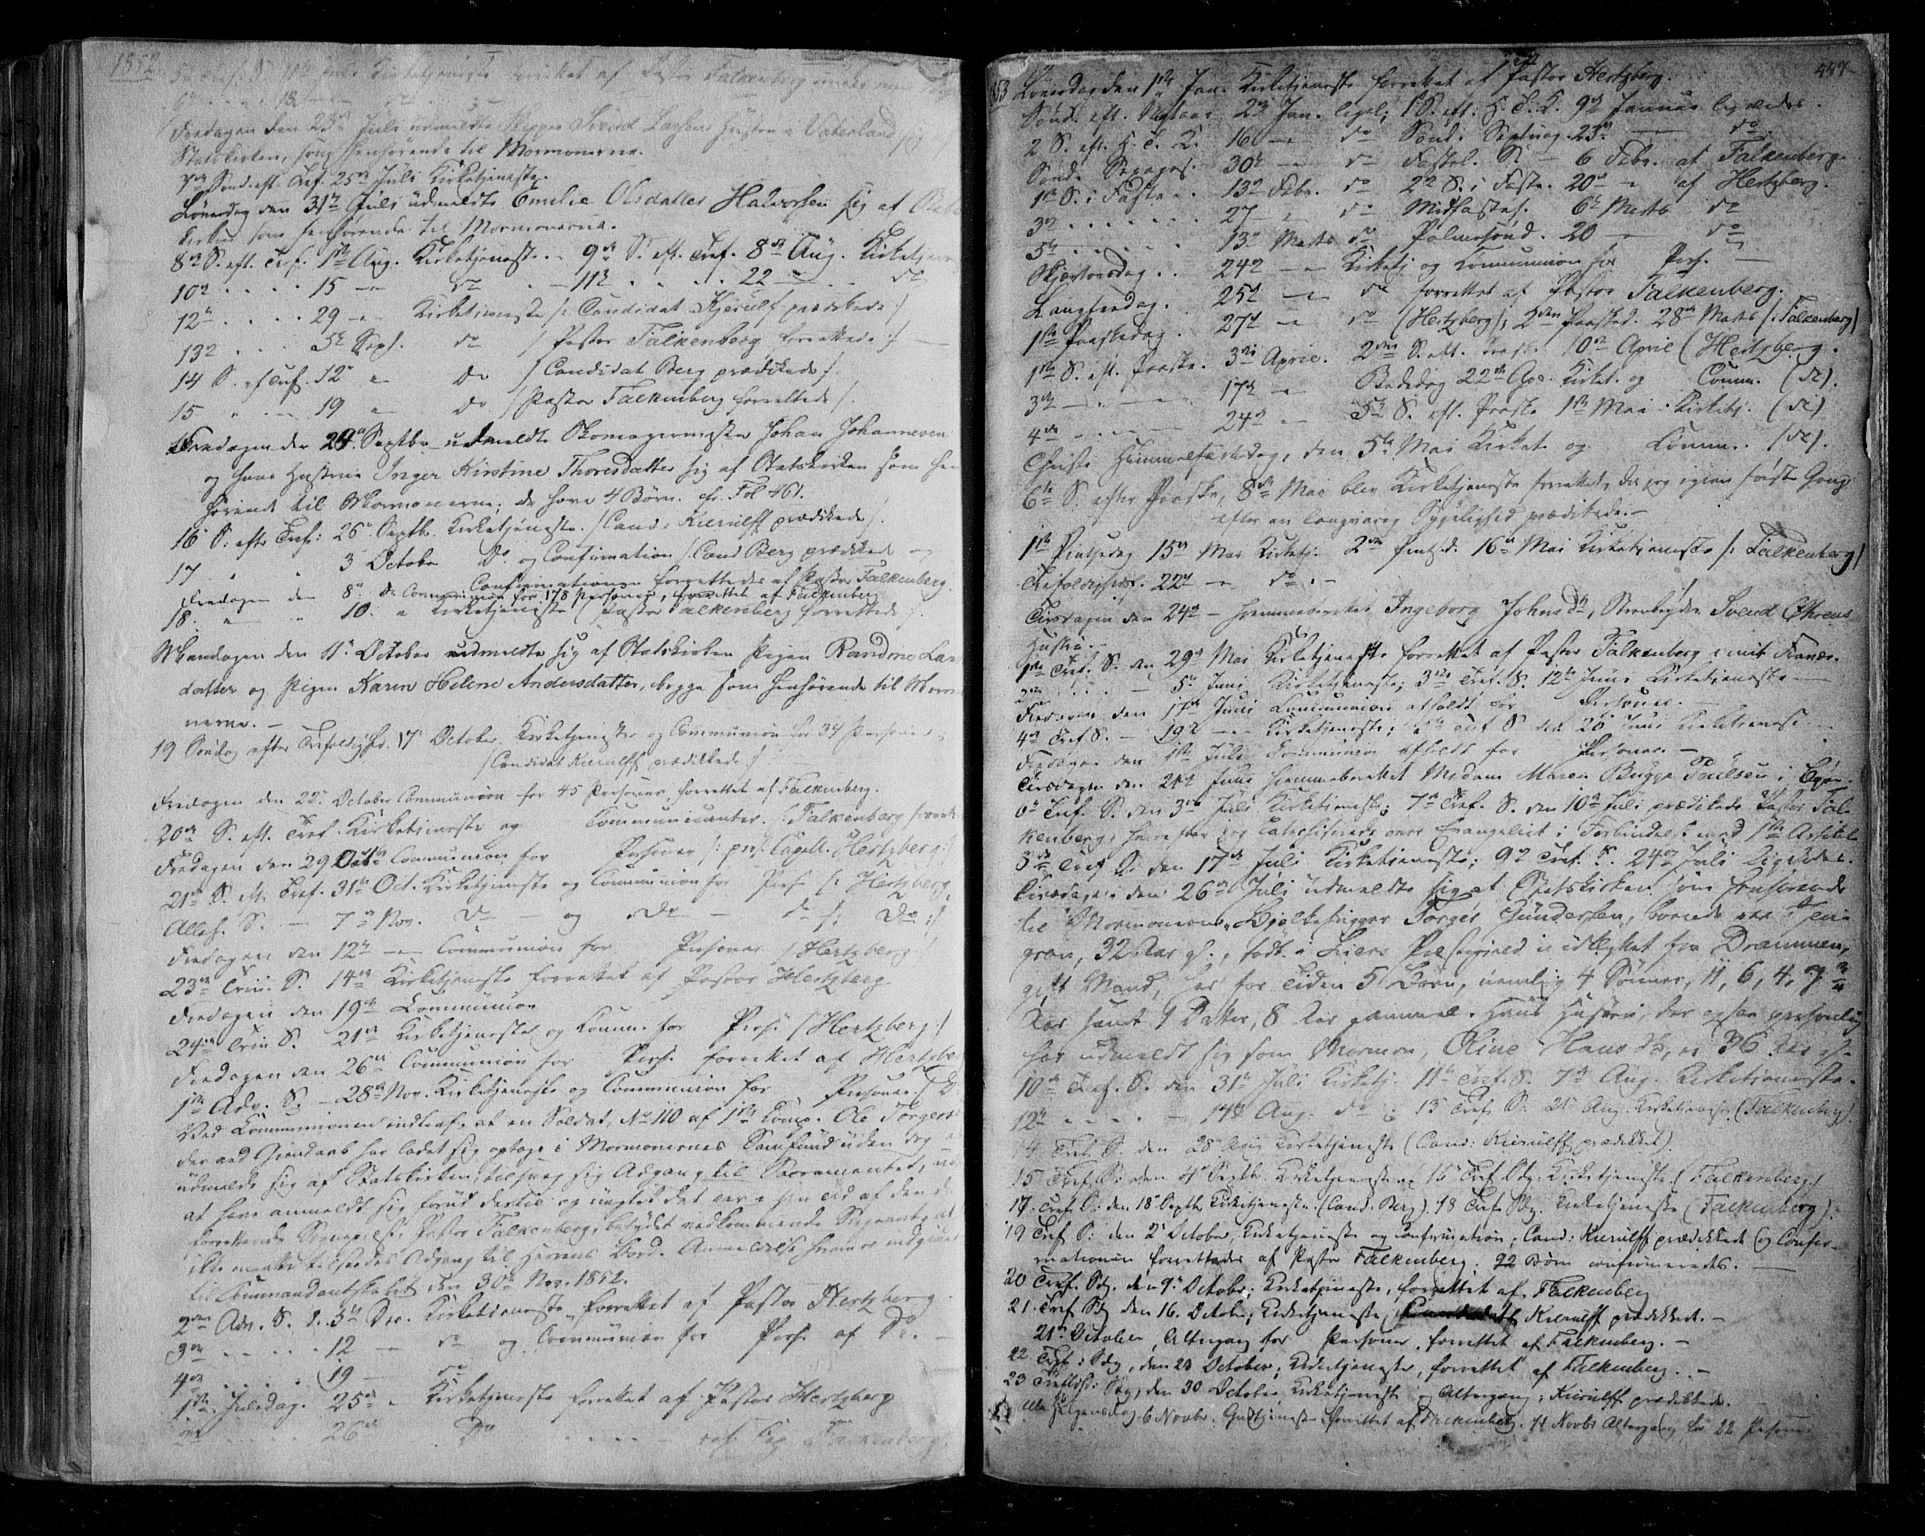 1852.
5te Tref. S. 11te Juli Kirketjeneste forrettet af Pastor Falkenberg
6te 18
Fredagen den 23de Juli udmeldte Skipper Svend Larsens Hustru i Vaterland
Statskirken, som henhørende til Mormonerne.
7de Sønd. eft. Tref. 25de Juli Kirketjeneste.
Löverdag den 31te Juli udmeldte Emilie Olsdatter Halvorsen sig af
kirken som henhørende til Mormonerne.
8de S. eft. Tref. 1ste Aug. Kirketjeneste. - 9de S. eft. Tref. 8de Aug.
10de 15 - do - 11te 22 - do
12te 29 - Kirketjeneste /: Candidat Kjerulf prædikede :/
13de 5te Sept. do /: Pastor Falkenberg forrettede :/
14 S. ef Tref. 12te do /: Candidat Berg prædikede :/
15 19 do /: Pastor Falkenberg forrettede :/
Fredagen den 24de Septbr udmeldte Skomagermester Johan Johannesen
og hans Hustru Inger Kirstine Thoresdatter sig af Statskirken som hen
hörende til Mormonerne; de have 4 Børn. cfr. Fol 461.
16 S. efter Tref: 26de Septbr. Kirketjeneste. /: Cand: Kierulff prædikede :/
17 3 October do og Confirmation /: Cand Berg prædikede og
Confirmationen forrettedes af Pastor Falkenberg.
Fredagen den 8de do Communion for 178 Personer, forrettet af Falkenberg
18 10 Kirketjeneste /: Pastor Falkenberg forrettede :/
Mandagen den 11te October udmeldte sig af Statskirken Pigen Randine Lars
datter og Pigen Karen Helene Andersdatter, begge som henhörende til Mormo
nerne. -
19 Søndag efter Trefoldighed. 17 October. Kirketjeneste og Communion for 34 Personer
/: Candidat Kierulff prædikede :/
Fredagen den 22de October Communion for 45 Personer, forrettet af Falkenberg.
20de S. eft. Tref. Kirketjeneste og Communicanter. /: Falkenberg
Fredagen den 29 Octbr Communion for Personer /: pers. Capell. Hertzberg :/
21de S. eft. Tref. 31te Oct. Kirketjeneste og Communion for Pers /: Hertzberg
Alleh. S. - 7de Nov. do - og do - do /: do :/
Fredagen den 12te - Communion for Personer /: Hertzberg :/
23de Trin. S. 14de Kirketjeneste forrettet af Pastor Hertzberg
Fredagen den 19de Communion
24de Trin S. 21de Kirketjeneste og Comm. for Pers. /: Hertzberg :/
Fredagen den 26de Communion for Pers. forrettet af Hertzberg
1ste Adv. S. - 28de Nov. Kirketjeneste og Communion for Personer
Ved Communionen indtraf, at en Soldat, No 110 af 1ste Comp. Ole Torgers
der ved Gjendaab har ladet sig optage i Mormonernes Samfund uden dog
udmelde sig af Statskirken, tilsneg sig Adgang til Sacramentet, uden
at have anmeldt sig forud dertil og uagtet det var i sin Tid af den
forrettende Sognepræst, Pastor Falkenberg, betydet vedkommende Sergeant, at
ikke maatte tilstedes Adgang til Herrens Bord. Anmeldelse herom er indgivet
til Commandantskabet den 30te Nov. 1852.
2den Adv. S. d. 5te Dec. Kirketjeneste forrettet af Pastor Hertzberg.
3de 12 do og Communion for Pers. af do. -
4de 19 - do
1ste Juledag. 25de Kirketjeneste forrettet af Pastor Hertzberg
26de do Falkenberg.
447
1853 Löverdag den 1ste Jan. Kirketjeneste forrettet af Pastor Hertzberg.
Sønd. eft. Nytaar 2de Jan. ligel; 1 S. eft. H. T. K. 9de Januar ligeledes.
2 S. eft. H. T. K. 16 - do Sønd. Septuag. 23de - do.
Sønd. Sexages. 30te - do Fastel. S. - 6 Febr. af Falkenberg.
1ste S. i Faste 13de Febr. do 2de S. i Faste. 20de af Hertzberg.
3de 27 do Midfastes. 6te Marts do
5te 13de Marts do Palmesønd. 20 - do
Skjærtorsdag. 24de - Kirketj og Communion for Pers. -
Langfredag. 25de - do forrettet af Pastor Falkenberg.
1ste Paaskedag. 27de - do (Hertzberg); 2den Paasked. 28de Marts /: Falkenberg)
1ste S. eft. Paaske. 3die April. 2den S. eft. Paaske 10de April (Hertzberg.
3de 17de Bededag 22de Apr. Kirket. og Comm. (do).
4de 24de - 5te S. eft. Paaske 1ste Mai Kirketj. (do)
Christi Himmelfartsdag, den 5te Mai Kirket og Comm. (do).
6te S. efter Paaske, 8de Mai blev Kirketjeneste forrettet, da jeg igjen første Gang
efter en langvarig Sygelighed prædikede. -
1ste Pintsedag 15de Mai Kirketj. 2den Pintsed. 16de Mai Kirketjeneste /: Falkenberg)
Trefoldighds. 22de - do -
Tirsdagen den 24de - hjemmeberettet Ingeborg Johnsdr, Svend
Hustru.
1ste Tref. S. den 29de Mai Kirketjeneste forrettet af Pastor Falkenberg i mit
2den 5te Juni Kirketjeneste; 3die Tref. S. 12te Juni Kirketjeneste -
Fredagen den 17de Juni Communion afholdt for Personer. -
4de Tref S. - 19de - Kirketjeneste; 5te Tref S den 26de Juni Kirketjeneste
Fredagen den 1ste Juli Communion afholdt for Personer -
Tirsdagen den 24de Juni hjemmeberettet Madam Maren Bugge Paulsen i
6te Tref. S. den 3die Juli Kirketjeneste; 7de Tref. S. den 10de Juli prædikede Pastor Fal-
kenberg; jeg Catechiserede over Evangeliet i Forbindelse med 1ste Artikel
8de Tref S. den 17de Juli Kirketjeneste; 9de Tref. S. 24de Juli Ligeledes.
Tirsdagen den 26de Juli udmeldte sig af Statskirken som henhørende
til Mormonerne, Bjelkehugger Torger Gundersen, boende paa
gran, 32 Aar gl., født i Liers Præstegjeld udflyttet fra Drammen,
gift Mand, har for Tiden 5 Børn, nemlig 4 Sønner, 11, 6, 4,
Aar samt 1 Datter, 8 Aar gammel. Hans Hustru, der ogsaa personlig
har udmeldt sig som Mormon, Oline Hansdr, er 36 Aar gl.
10de Tref. S. den 31te Juli Kirketj. 11te Tref. S. 7de Aug. Kirketjeneste.
12te - 14de Aug. do; 13 Tref. S. 21de Aug. Kirketjeneste (Falkenberg).
14 Tref. S. den 28de Aug Kirketjeneste (Cand: Kierulff prædiket)
15 Tref. S. den 4de Septbr. Kirketjeneste 16 Tref Sdg. Kirketjeneste. (Falkenberg)
17. Tref S: den 18de Septbr Kirketjeneste (Cand. Berg). 18 Tref Sdg. Kirketjeneste (Falkenberg).
19 Tref S: den 2de October, Kirketjeneste og Confirmation; Cand: Kierulff prædikede og Confir-
mationen forrettedes af Pastor Falkenberg; 92 Børn confirmeredes. -
20 Tref. Sdg. den 9de October; Kirketjeneste, forrettet af Falkenberg
21. Tref Sdg den 16. October, Kirketjeneste, Kierulff prædikede. -
21de October, Altergang for Personer, forrettet af Falkenberg. -
22 Tref: Sdg, den 23 October, Kirketjeneste, forrettet af Falkenberg. -
23 Trefold: Sdg, den 30 October Kirketjeneste og Altergang; Kierulff prædikede. -
Alle Helgensdag 6 Novbr. Gudstjeneste forrettet af Falkenberg. 11 Novbr Altergang for 22 Personer